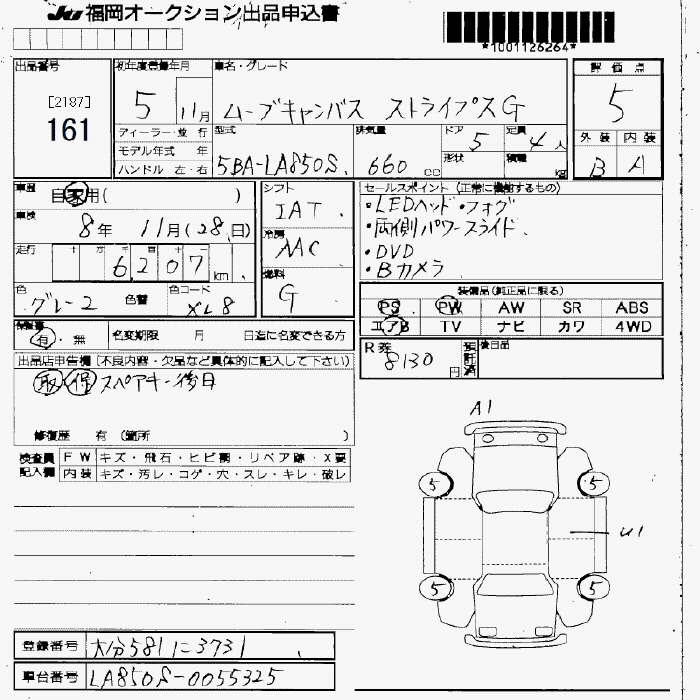 JU 福岡オークション出品申込書
*1001126264*
出品番号
[2187]
161
初年度登録年月
5 11月
車名・グレード
ムーブキャンバス ストライプスG
評価点
5
ディーラー・並行
モデル年式 年
ハンドル 左・右
型式
5BA-LA850S
排気量
660 cc
ドア
5
形状
定員
4人
積載
kg
外装 内装
B A
車歴
自家用( )
車検
8年 11月(28日)
走行
6207 km
色
グレー2
色替
色コード
シフト
IAT
冷房
AAC
燃料
G
セールスポイント (正常に機能するもの)
・LEDヘッド・フォグ
・両側パワースライド
・DVD
・Bカメラ
装備品(純正品に限る)
PS PW AW SR ABS
エアB TV ナビ カワ 4WD
有・無
名変期限 月 日迄に名変できる方
R券
8130円
預託済
後日品
出品店申告欄 (不良内容・欠品など具体的に記入して下さい)
取 保 スペアキー後日
修復歴 有 (箇所 )
検査員記入欄
FW キズ・飛石・ヒビ割・リペア跡・X要
内装 キズ・汚レ・コゲ・穴・スレ・キレ・破レ
A1
5 5
U1
5 5
登録番号 大分581に3731
車台番号 LA850S-0055325